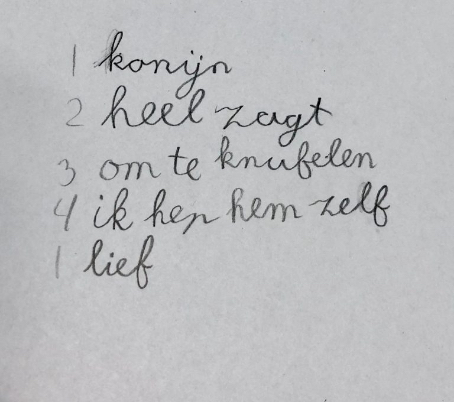 1 konijn
2 heel zagt
3 om te knufelen
4 ik hep hem zelf
1 lief